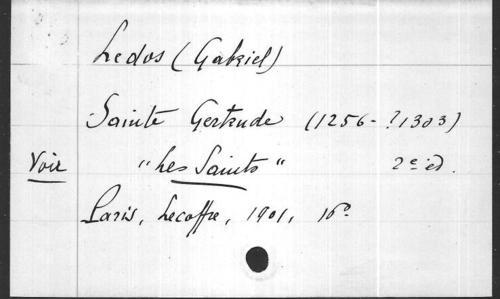 Ledos (Gabriel)
Sainte Gertrude (1256-?1303)
Voir "Les Saints" 2e éd.
Paris, Lecoffre, 1901, 16°